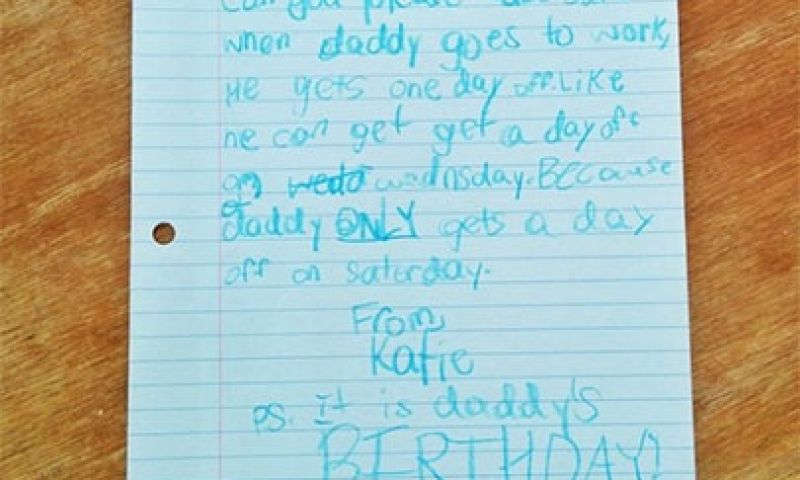 can you please
when daddy goes to work,
He gets one day off. Like
he can get get a day off
on wedo wednsday. Because
daddy ONLY gets a day
off on saturday.
From,
Katie
ps. It is daddy's
BIRTHDAY!